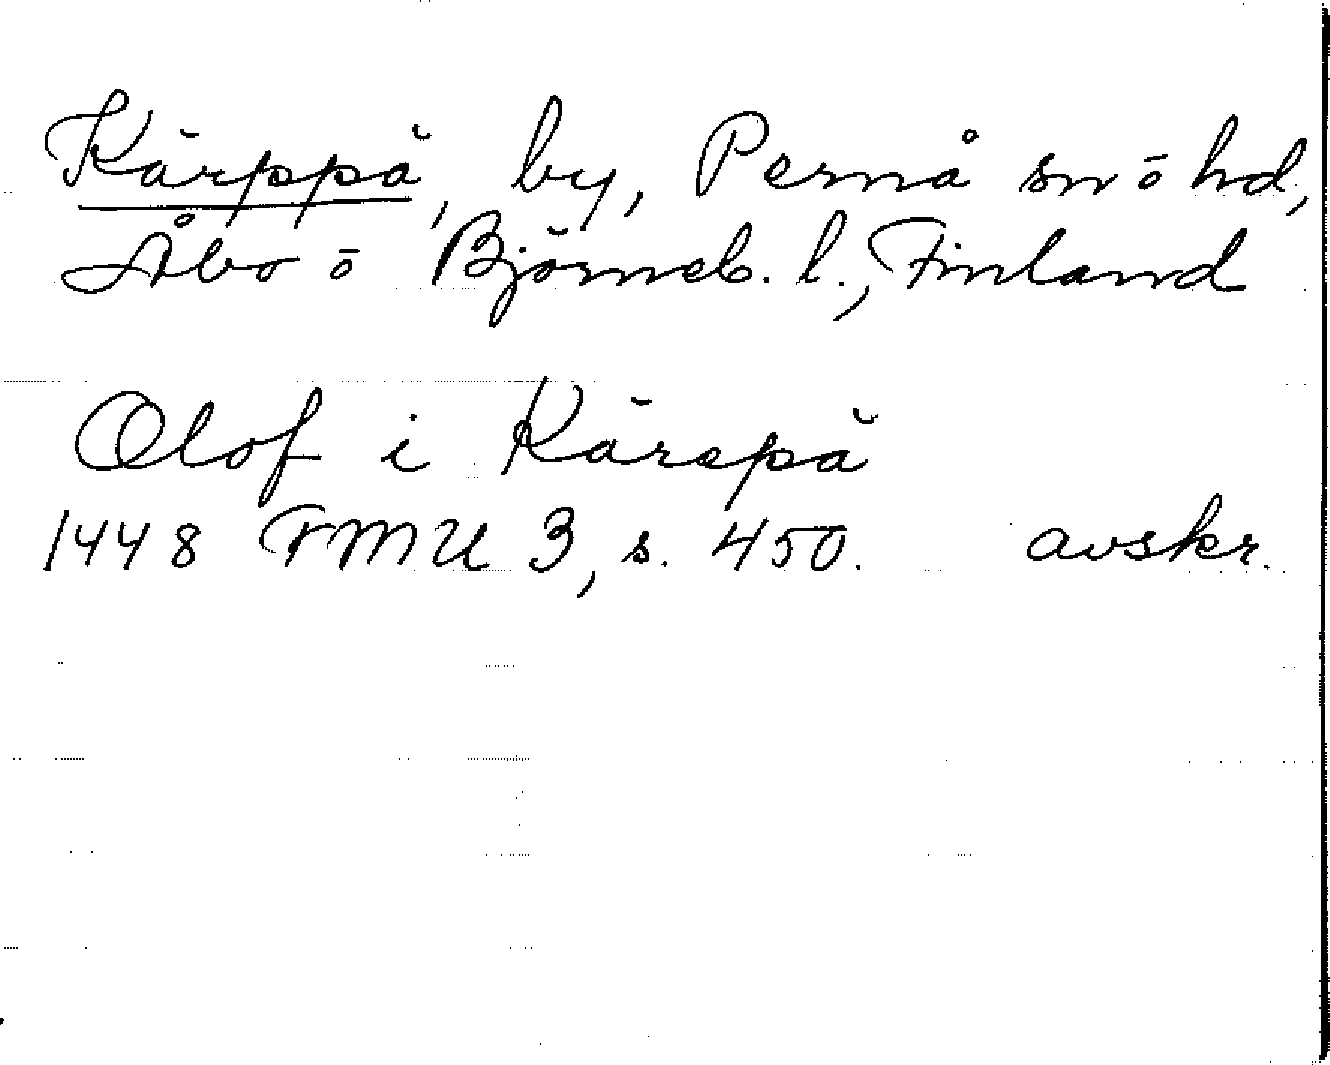 Kärppä, by, Pernå sn ō hd,
Åbo ō Björneb. l., Finland
Olof i Kärepä
1448 FMU 3, s. 450. avskr.